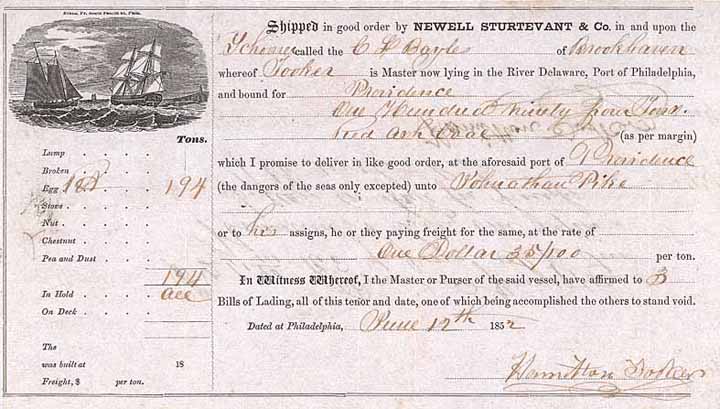 Shipped in good order by NEWELL STURTEVANT & Co. in and upon the
Schooner called the C H Bayles of Brookhaven
whereof Tooker is Master now lying in the River Delaware, Port of Philadelphia,
and bound for Providence
One Hundred Ninety four Tons
Red Ash Coal (as per margin)
which I promise to deliver in like good order, at the aforesaid port of Providence
(the dangers of the seas only excepted) unto Johnathan Pike
or to his assigns, he or they paying freight for the same, at the rate of
One Dollar 35/100 per ton.
In Witness Whereof, I the Master or Purser of the said vessel, have affirmed to 3
Bills of Lading, all of this tenor and date, one of which being accomplished the others to stand void.
Dated at Philadelphia, June 12th 1852
Hamilton Tooker
Tons.
Lump
Broken
Egg 194
Stove
Nut
Chestnut
Pea and Dust
194
In Hold all
On Deck
The
was built at 18
Freight, $ per ton.